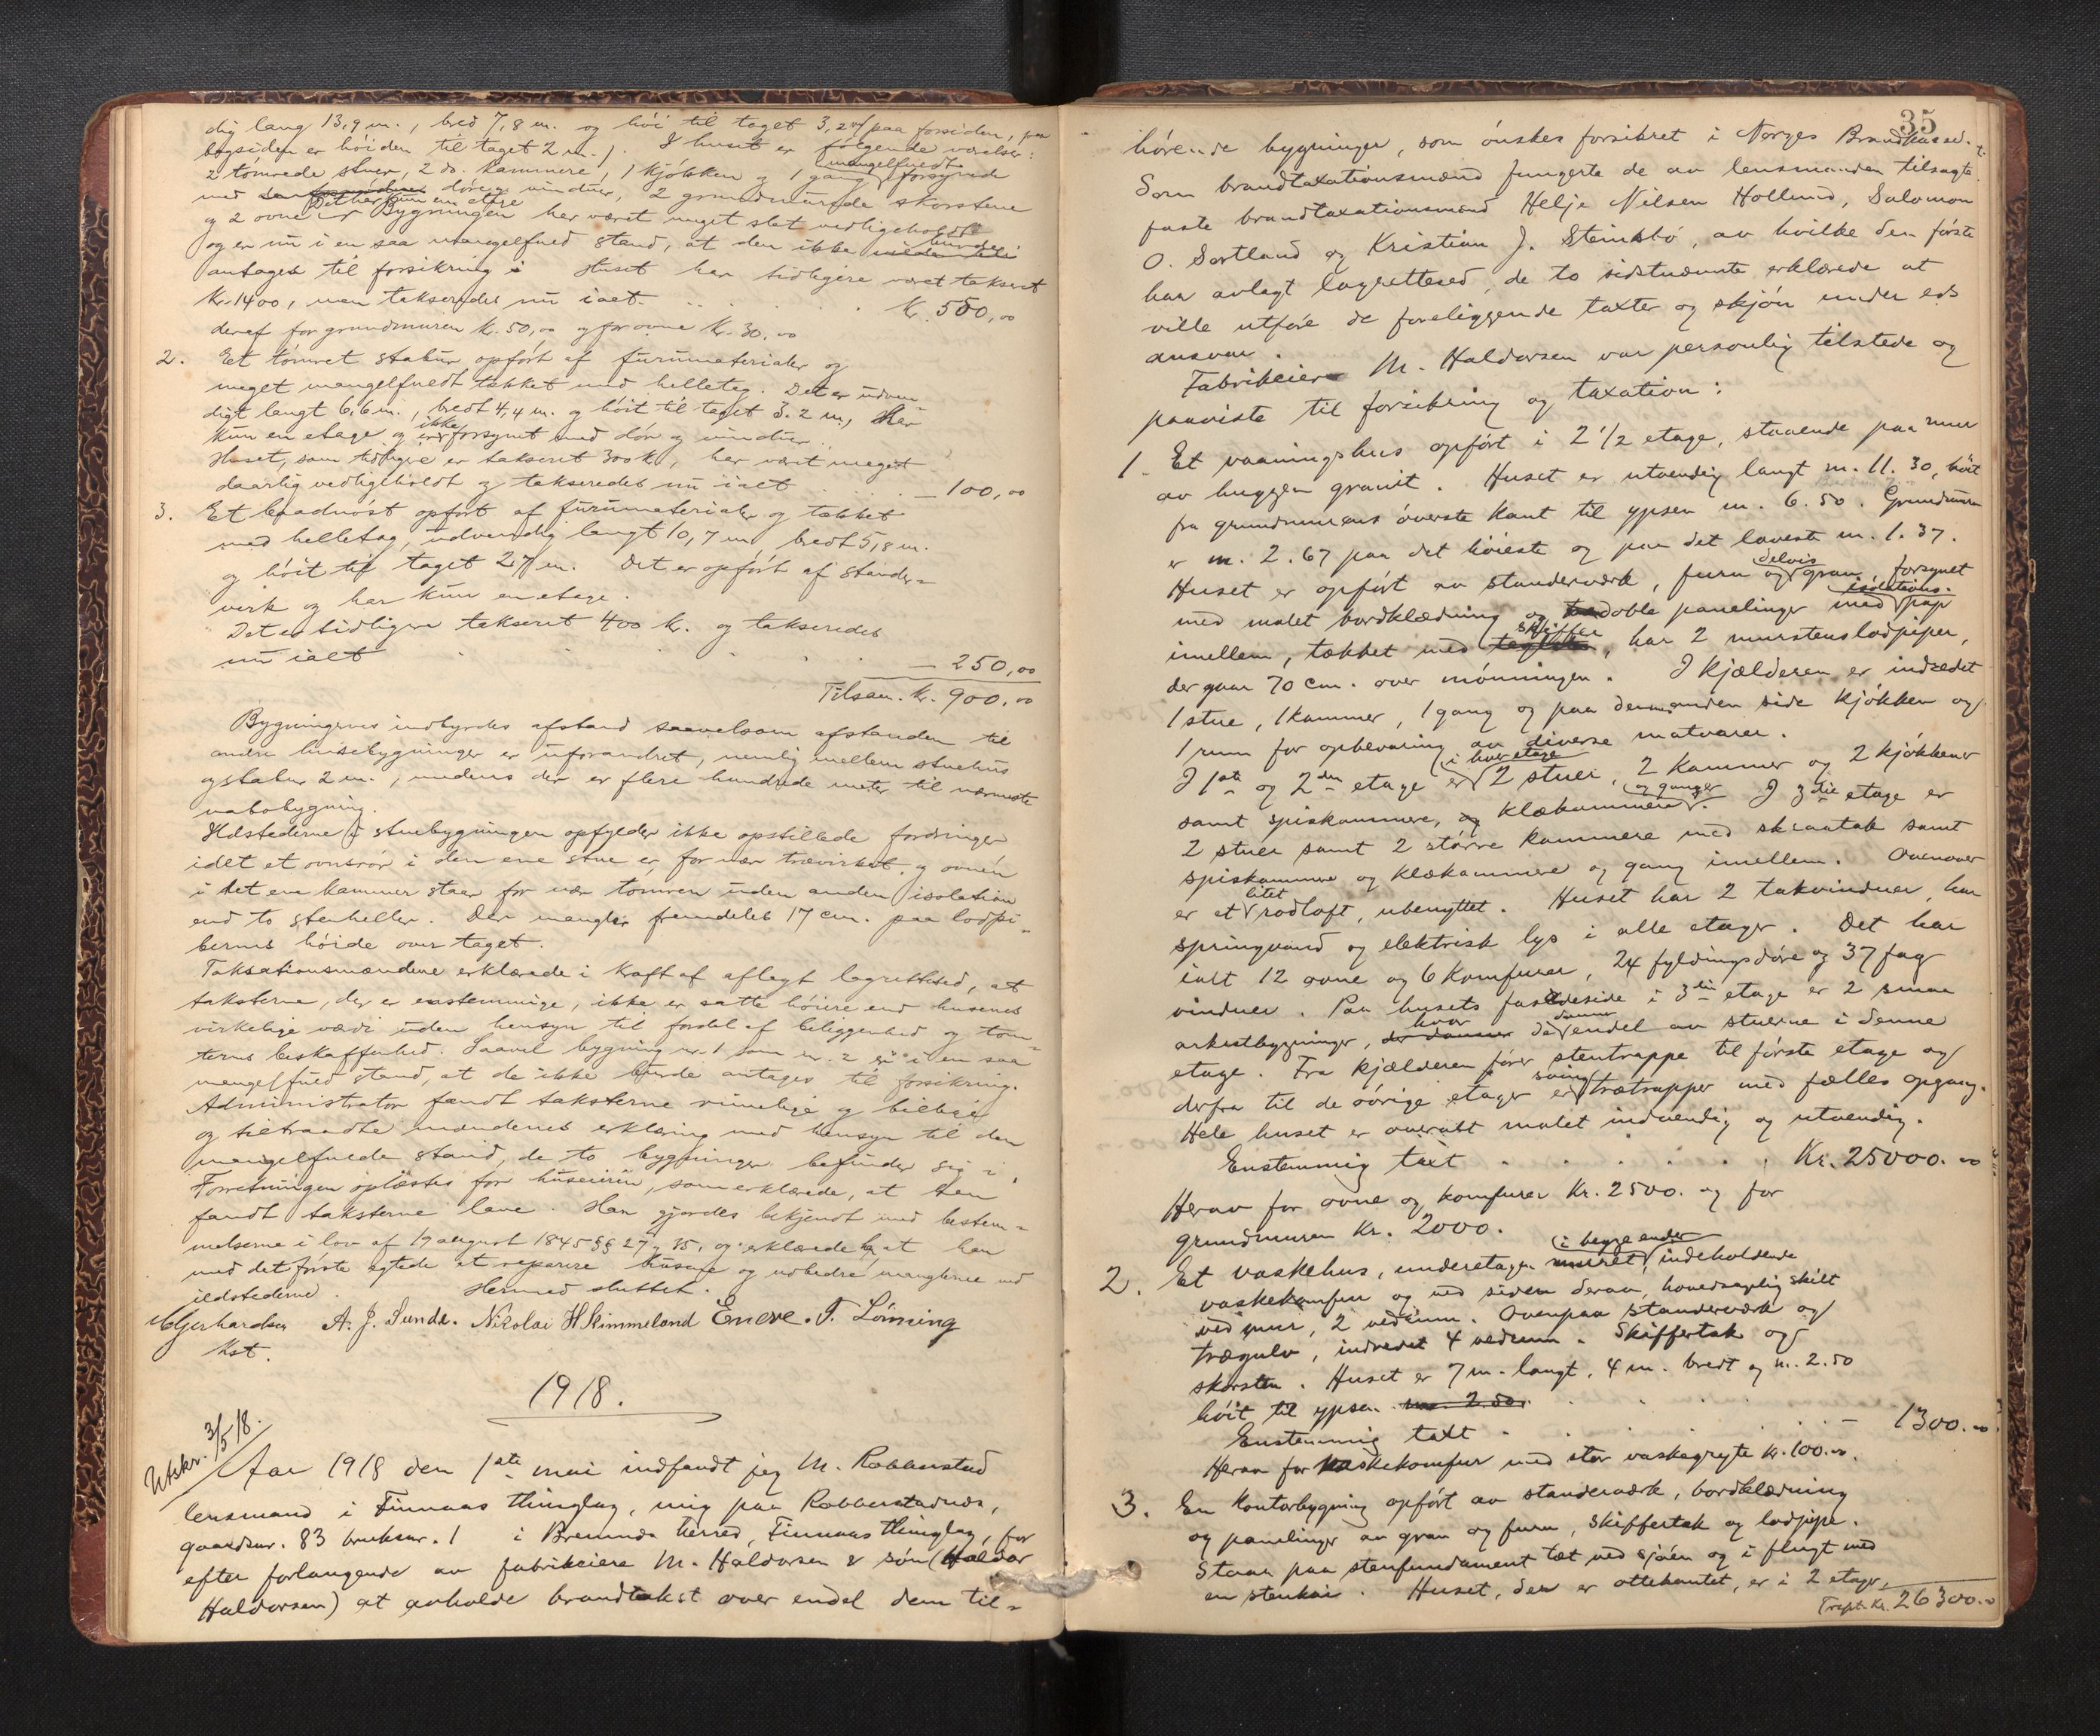 dig lang 13,9 m., bred 7,8 m. og høi til taget 3,2 m (paa forsiden, paa
bagsiden er høiden til taget 2 m.). I huset er følgende værelser:
2 tømrede stuer, 2 do. kammere, 1 kjøkken og 1 gang mangelfuldt forsynede
med døre og vinduer, 2 grundmurede skorstene
og 2 ovne. Det har kun en etage. Bygningen har været meget slet vedligeholdt
og er nu i en saa mangelfuld stand, at den ikke burde
antages til forsikring. Huset har tidligere været takseret
kr. 1400, men takseredes nu ialt . . . . kr. 550,00
deraf for grundmuren kr. 50,00 og for ovne kr. 30,00
2. Et tømret stabur opført af furumaterialer og
meget mangelfuldt tækket med helletag. Det er udven-
digt langt 6,6 m., bredt 4,4 m. og høit til taget 3.2 m, Har
kun en etage og er ikke forsynet med dør og vinduer.
Huset, som tidligere er takseret 300 kr, har været meget
daarlig vedligeholdt og takseredes nu ialt . . . . — 100,00
3. Et baadnøst opført af furumaterialer og tækket
med helletag, udvendig langt 10,7 m, bredt 5,8 m.
og høit til taget 2,7 m. Det er opført af stænder-
virk og har kun en etage.
Det er tidligere takseret 400 kr. og takseredes
nu ialt . . . . . — 250,00
Tilsam. kr. 900.00
Bygningernes indbyrdes afstand saavelsom afstanden til
andre husebygninger er uforandret, nemlig mellem stuehus
og stabur 2 m., medens der er flere hundrede meter til nærmeste
nabobygning.
Ildstederne i stuebygningen opfylder ikke opstillede fordringer
idet et ovnsrør i den ene stue er for nær trævirket, og ovnen
i det ene kammer staar for nær tømren uden anden isolation
end to stenheller. Der mangler fremdeles 17 cm. paa lodpi-
bernes høide over taget.
Taksationsmændene erklærede i kraft af aflagt lagrettesed, at
taksterne, der er enstemmige, ikke er satte høiere end husenes
virkelige værdi uden hensyn til fordel af beliggenhed og tom-
ternes beskaffenhed. Saavel bygning nr. 1 som nr. 2 er i en saa
mangelfuld stand, at de ikke burde antages til forsikring.
Administrator fandt taksterne rimelige og billige
og tiltraadte mændenes erklæring med hensyn til den
mangelfulde stand, de to bygninger befinder sig i.
Forretningen oplæstes for huseieren, som erklærede, at han
fandt taksterne lave. Han gjordes bekjendt med bestem-
melserne i lov af 19 august 1845 §§ 27 og 35, og erklærede at han
med det første agtede at reparere husene og udbedre manglerne ved
ildstederne. Hermed sluttet.
Gjerhardsen A. J. Sunde. Nikolai H Skimmeland T. Lønning
Kst.
1918.
Utskr. 3/5 18.
Aar 1918 den 1ste mai indfandt jeg M. Robberstad
lensmand i Finnaas thinglag, mig paa Robberstadnes,
gaardsnr. 83 bruksnr. 1 i Bremnes herred, Finnaas thinglag, for
efter forlangende av fabrikeiere M. Haldorsen & søn (Haldor
Haldorsen) at avholde brandtakst over endel dem til-
35
hørende bygninger, som ønskes forsikret i Norges Brandkasse.
Som brandtaxationsmænd fungerte de av lensmanden tilsagte
faste brandtaxationsmænd Helje Nilsen Hollund, Salomon
O. Sortland og Kristian J. Steinsbø, av hvilke den første
har avlagt lagrettesed, de to sidstnævnte erklærede at
ville utføre de foreliggende taxter og skjøn under eds
ansvar.
Fabrikeier M. Haldorsen var personlig tilstede og
paaviste til forsikring og taxation:
1. Et vaaningshus opført i 2 1/2 etage, staaende paa mur
av huggen granit. Huset er utvendig langt m. 11.30, høit
fra grundmurens øverste kant til ypsen m. 6.50. Grundmuren
er m. 2.67 paa det høieste og paa det laveste m. 1.37.
Huset er opført av standerværk, furu og delvis gran, forsynet
med malet bordklædning og doble panelinger med isolations-pap
imellem, tækket med skiffer, har 2 murstenslodpiper,
der gaar 70 cm. over mønningen. I kjælderen er indredet
1 stue, 1 kammer, 1 gang og paa den anden side kjøkken og
1 rum for opbevaring av diverse matvarer.
I 1ste og 2den etage er i hver etage 2 stuer, 2 kammer og 2 kjøkkener
samt spiskammere, klækammere og ganger. I 3die etage er
2 stuer samt 2 større kammere med skraatak samt
spiskammere og klækammere og gang imellem. Ovenover
er et litet rodloft, ubenyttet. Huset har 2 takvinduer, har
springvand og elektrisk lys i alle etager. Det har
ialt 12 ovne og 6 komfurer, 24 fyldingsdøre og 37 fag
vinduer. Paa husets fasadeside i 3die etage er 2 smaa
arkestbygninger, hvor de danner endel av stuerne i denne
etage. Fra kjælderen fører stentrappe til første etage og
derfra til de øvrige etager er svingtrætrapper med fælles opgang.
Hele huset er overalt malet indvendig og utvendig.
Enstemmig taxt . . . . . Kr. 25000.00
Herav for ovne og komfurer Kr. 2500. og for
grundmuren Kr. 2000.
2. Et vaskehus, underetagen muret i begge ender, indeholdende
vaskekomfur og ved siden derav, hovedsagelig skilt
ved mur, 2 vedrum. Ovenpaa standerværk og
trægulv, indredet 4 vedrum. Skiffertak og
skorsten. Huset er 7 m. langt, 4 m. bredt og m. 2.50
høit til ypsen. m. 2.50.
Enstemmig taxt . . . . — 1300.00
Herav for vaskekomfur med stor vaskegryte kr. 100.00.
3. En kontorbygning opført av standerværk, bordklædning
og panelinger av gran og furu, skiffertak og lodpipe.
Staar paa stenfundament tæt ved sjøen og i flugt med
en stenkai. Huset, der er ottekantet, er i 2 etager,
Trspt. Kr. 26300.00